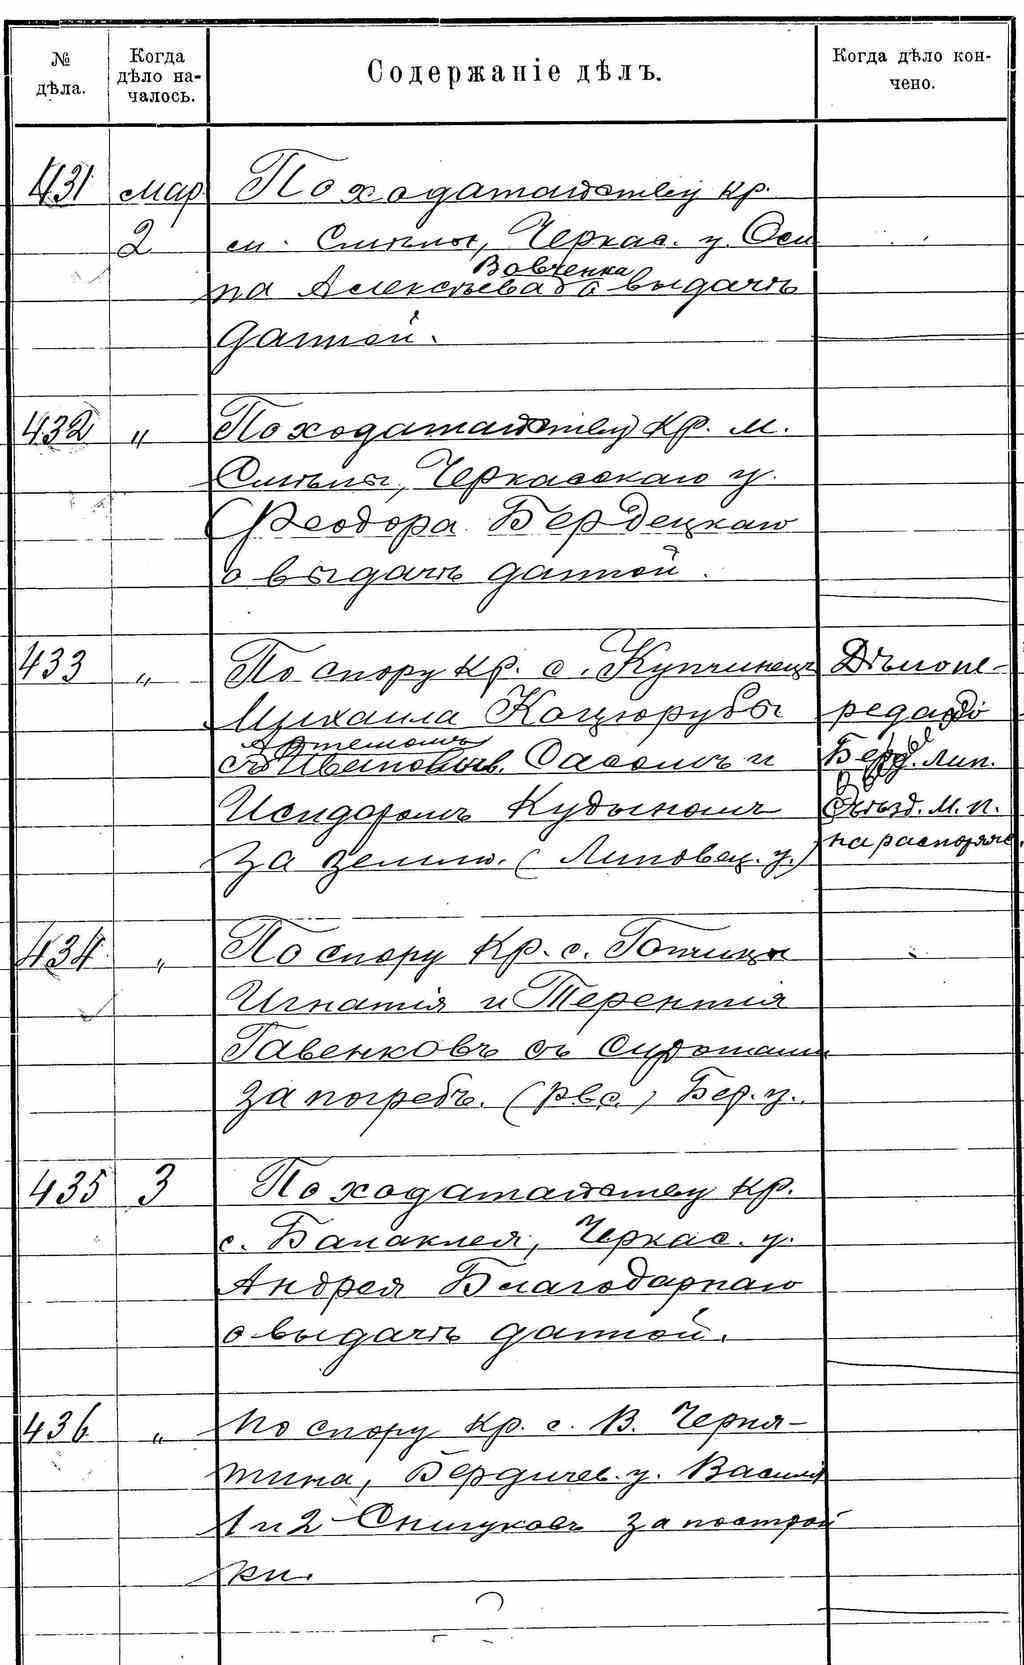 № дѣла.
Когда дѣло на-
чалось.
Содержаніе дѣлъ.
Когда дѣло кон-
чено.
431 Мар. 2
По ходатайству кр.
м. Смѣлы, Черкас. у. Оси
па Алексѣева Вовченка о выдачѣ
данной.
432 "
По ходатайству кр. м.
Смѣлы, Черкасскаго у.
Ѳеодора Бердецкаго
о выдачѣ данной.
433 "
По спору кр. с. Купчинецъ
Михаила Коцюрубы
Артемомъ
съ Ивановыв. Сасомъ и
Исидоромъ Кудыномъ
за землю. (Липовец. у.)
Дѣло пе-
редано
Берд. Лип.
Съѣзд. М. П.
на распоряже.
434 "
По спору кр. с. Топчицы
Игнатія и Терентія
Гавенковъ съ Сиротами
за погребъ. (рвс.) Бер. у.
435 3
По ходатайству кр.
с. Балаклея, Черкас. у.
Андрея Благодарнаго
о выдачѣ данной.
436 "
По спору кр. с. В. Черня-
тина, Бердичев. у. Василія
1 и 2 Снигуковъ за построй
ки.